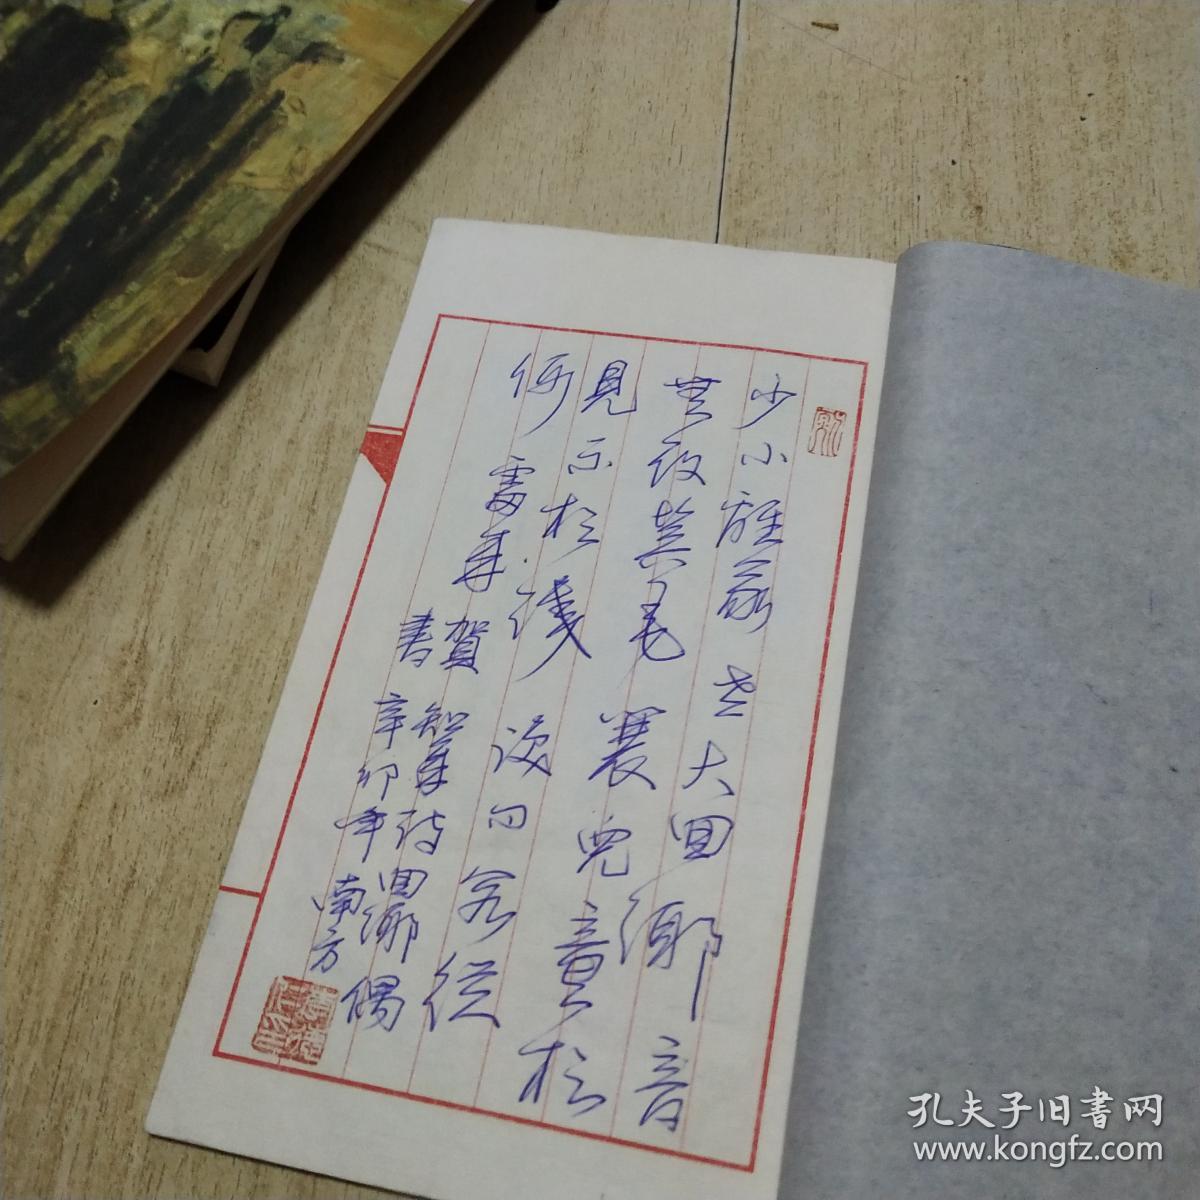 少小離家老大回鄉音
無改鬢毛衰兒童相
見不相識问客從
何處来賀知章詩回鄉偶
書辛卯年南方
孔夫子旧書网
www.kongfz.com